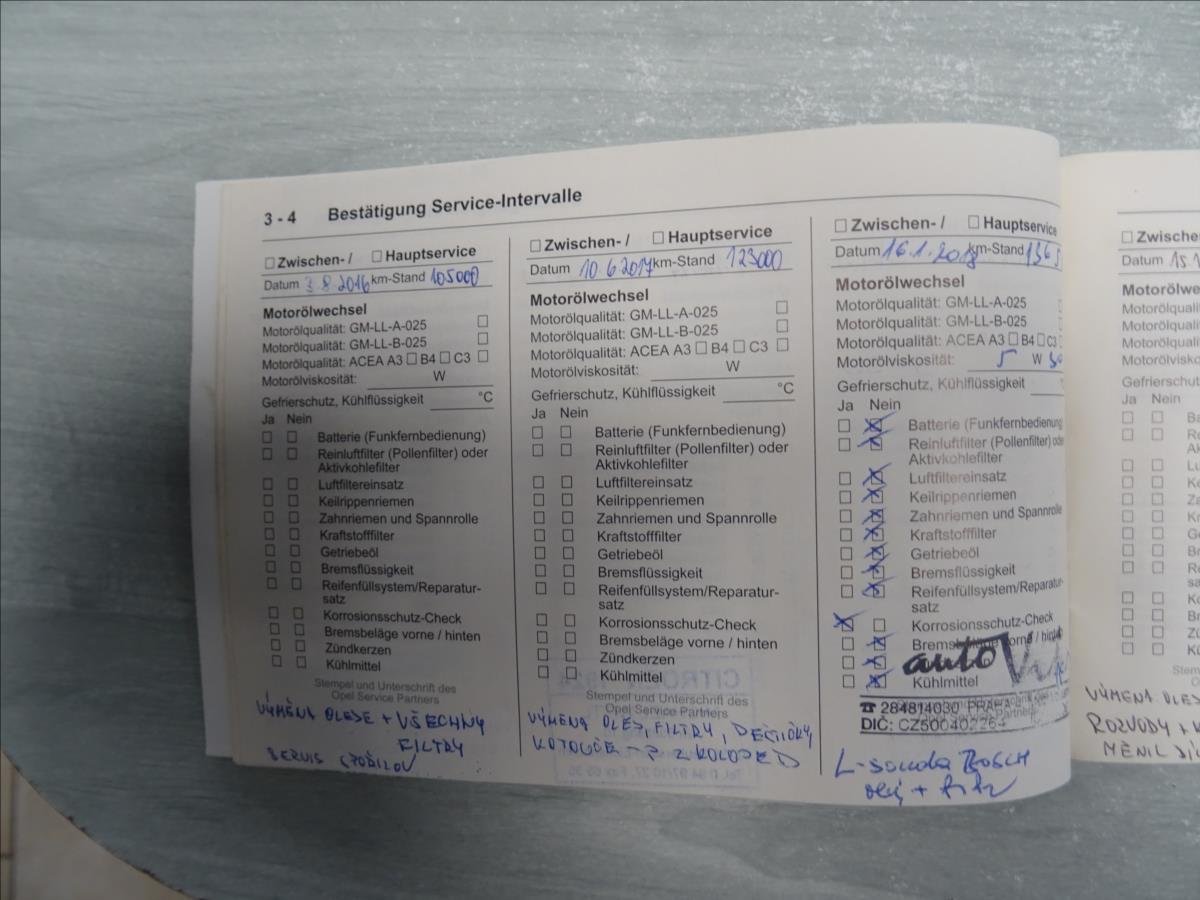 3 - 4 Bestätigung Service-Intervalle
☐ Zwischen- / ☐ Hauptservice
Datum 3 8 2016 km-Stand 105000
Motorölwechsel
Motorölqualität: GM-LL-A-025 ☐
Motorölqualität: GM-LL-B-025 ☐
Motorölqualität: ACEA A3 ☐ B4 ☐ C3 ☐
Motorölviskosität: W
Gefrierschutz, Kühlflüssigkeit °C
Ja Nein
☐ ☐ Batterie (Funkfernbedienung)
☐ ☐ Reinluftfilter (Pollenfilter) oder
Aktivkohlefilter
☐ ☐ Luftfiltereinsatz
☐ ☐ Keilrippenriemen
☐ ☐ Zahnriemen und Spannrolle
☐ ☐ Kraftstofffilter
☐ ☐ Getriebeöl
☐ ☐ Bremsflüssigkeit
☐ ☐ Reifenfüllsystem/Reparatur-
satz
☐ ☐ Korrosionsschutz-Check
☐ ☐ Bremsbeläge vorne / hinten
☐ ☐ Zündkerzen
☐ ☐ Kühlmittel
Stempel und Unterschrift des
Opel Service Partners
VÝMĚNA OLEJE + VŠECHNY
FILTRY
SERVIS SPOŘILOV
☐ Zwischen- / ☐ Hauptservice
Datum 10 6 2017 km-Stand 123000
Motorölwechsel
Motorölqualität: GM-LL-A-025 ☐
Motorölqualität: GM-LL-B-025 ☐
Motorölqualität: ACEA A3 ☐ B4 ☐ C3 ☐
Motorölviskosität: W
Gefrierschutz, Kühlflüssigkeit °C
Ja Nein
☐ ☐ Batterie (Funkfernbedienung)
☐ ☐ Reinluftfilter (Pollenfilter) oder
Aktivkohlefilter
☐ ☐ Luftfiltereinsatz
☐ ☐ Keilrippenriemen
☐ ☐ Zahnriemen und Spannrolle
☐ ☐ Kraftstofffilter
☐ ☐ Getriebeöl
☐ ☐ Bremsflüssigkeit
☐ ☐ Reifenfüllsystem/Reparatur-
satz
☐ ☐ Korrosionsschutz-Check
☐ ☐ Bremsbeläge vorne / hinten
☐ ☐ Zündkerzen
☐ ☐ Kühlmittel
Stempel und Unterschrift des
Opel Service Partners
VÝMĚNA OLEJ, FILTRY, DESTIČKY,
KOTOUČE
☐ Zwischen- / ☐ Hauptservice
Datum 16.1.2018 km-Stand 136
Motorölwechsel
Motorölqualität: GM-LL-A-025
Motorölqualität: GM-LL-B-025
Motorölqualität: ACEA A3 ☐ B4 ☐ C3
Motorölviskosität: 5 W 30
Gefrierschutz, Kühlflüssigkeit
Ja Nein
☐ ☒ Batterie (Funkfernbedienung)
☐ ☒ Reinluftfilter (Pollenfilter) oder
Aktivkohlefilter
☐ ☒ Luftfiltereinsatz
☐ ☒ Keilrippenriemen
☐ ☒ Zahnriemen und Spannrolle
☐ ☒ Kraftstofffilter
☐ ☒ Getriebeöl
☐ ☒ Bremsflüssigkeit
☐ ☒ Reifenfüllsystem/Reparatur-
satz
☒ ☐ Korrosionsschutz-Check
☐ ☒ Bremsbeläge vorne / hint
☐ ☒ auto
☐ ☒ Kühlmittel
☎ 284814030 PRAHA
DIČ: CZ500402264
L-sonda BOSCH
olej + filtr
☐ Zwische
Datum 15.1
Motorölwe
Motorölqua
Motorölqua
Motorölqua
Motorölvisko
Gefrierschu
Ja Nein
VÝMĚNA OLE
ROZVODY +
MĚNIL